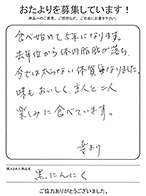 おたよりを募集しています!
食べ始めて5年になります。
去年位から体内脂肪が落ち、
今では太らない体質になりました。
味もおいしく、主人と二人
楽しみに食べています。
幸より
黒にんにく
ご協力ありがとうございました。